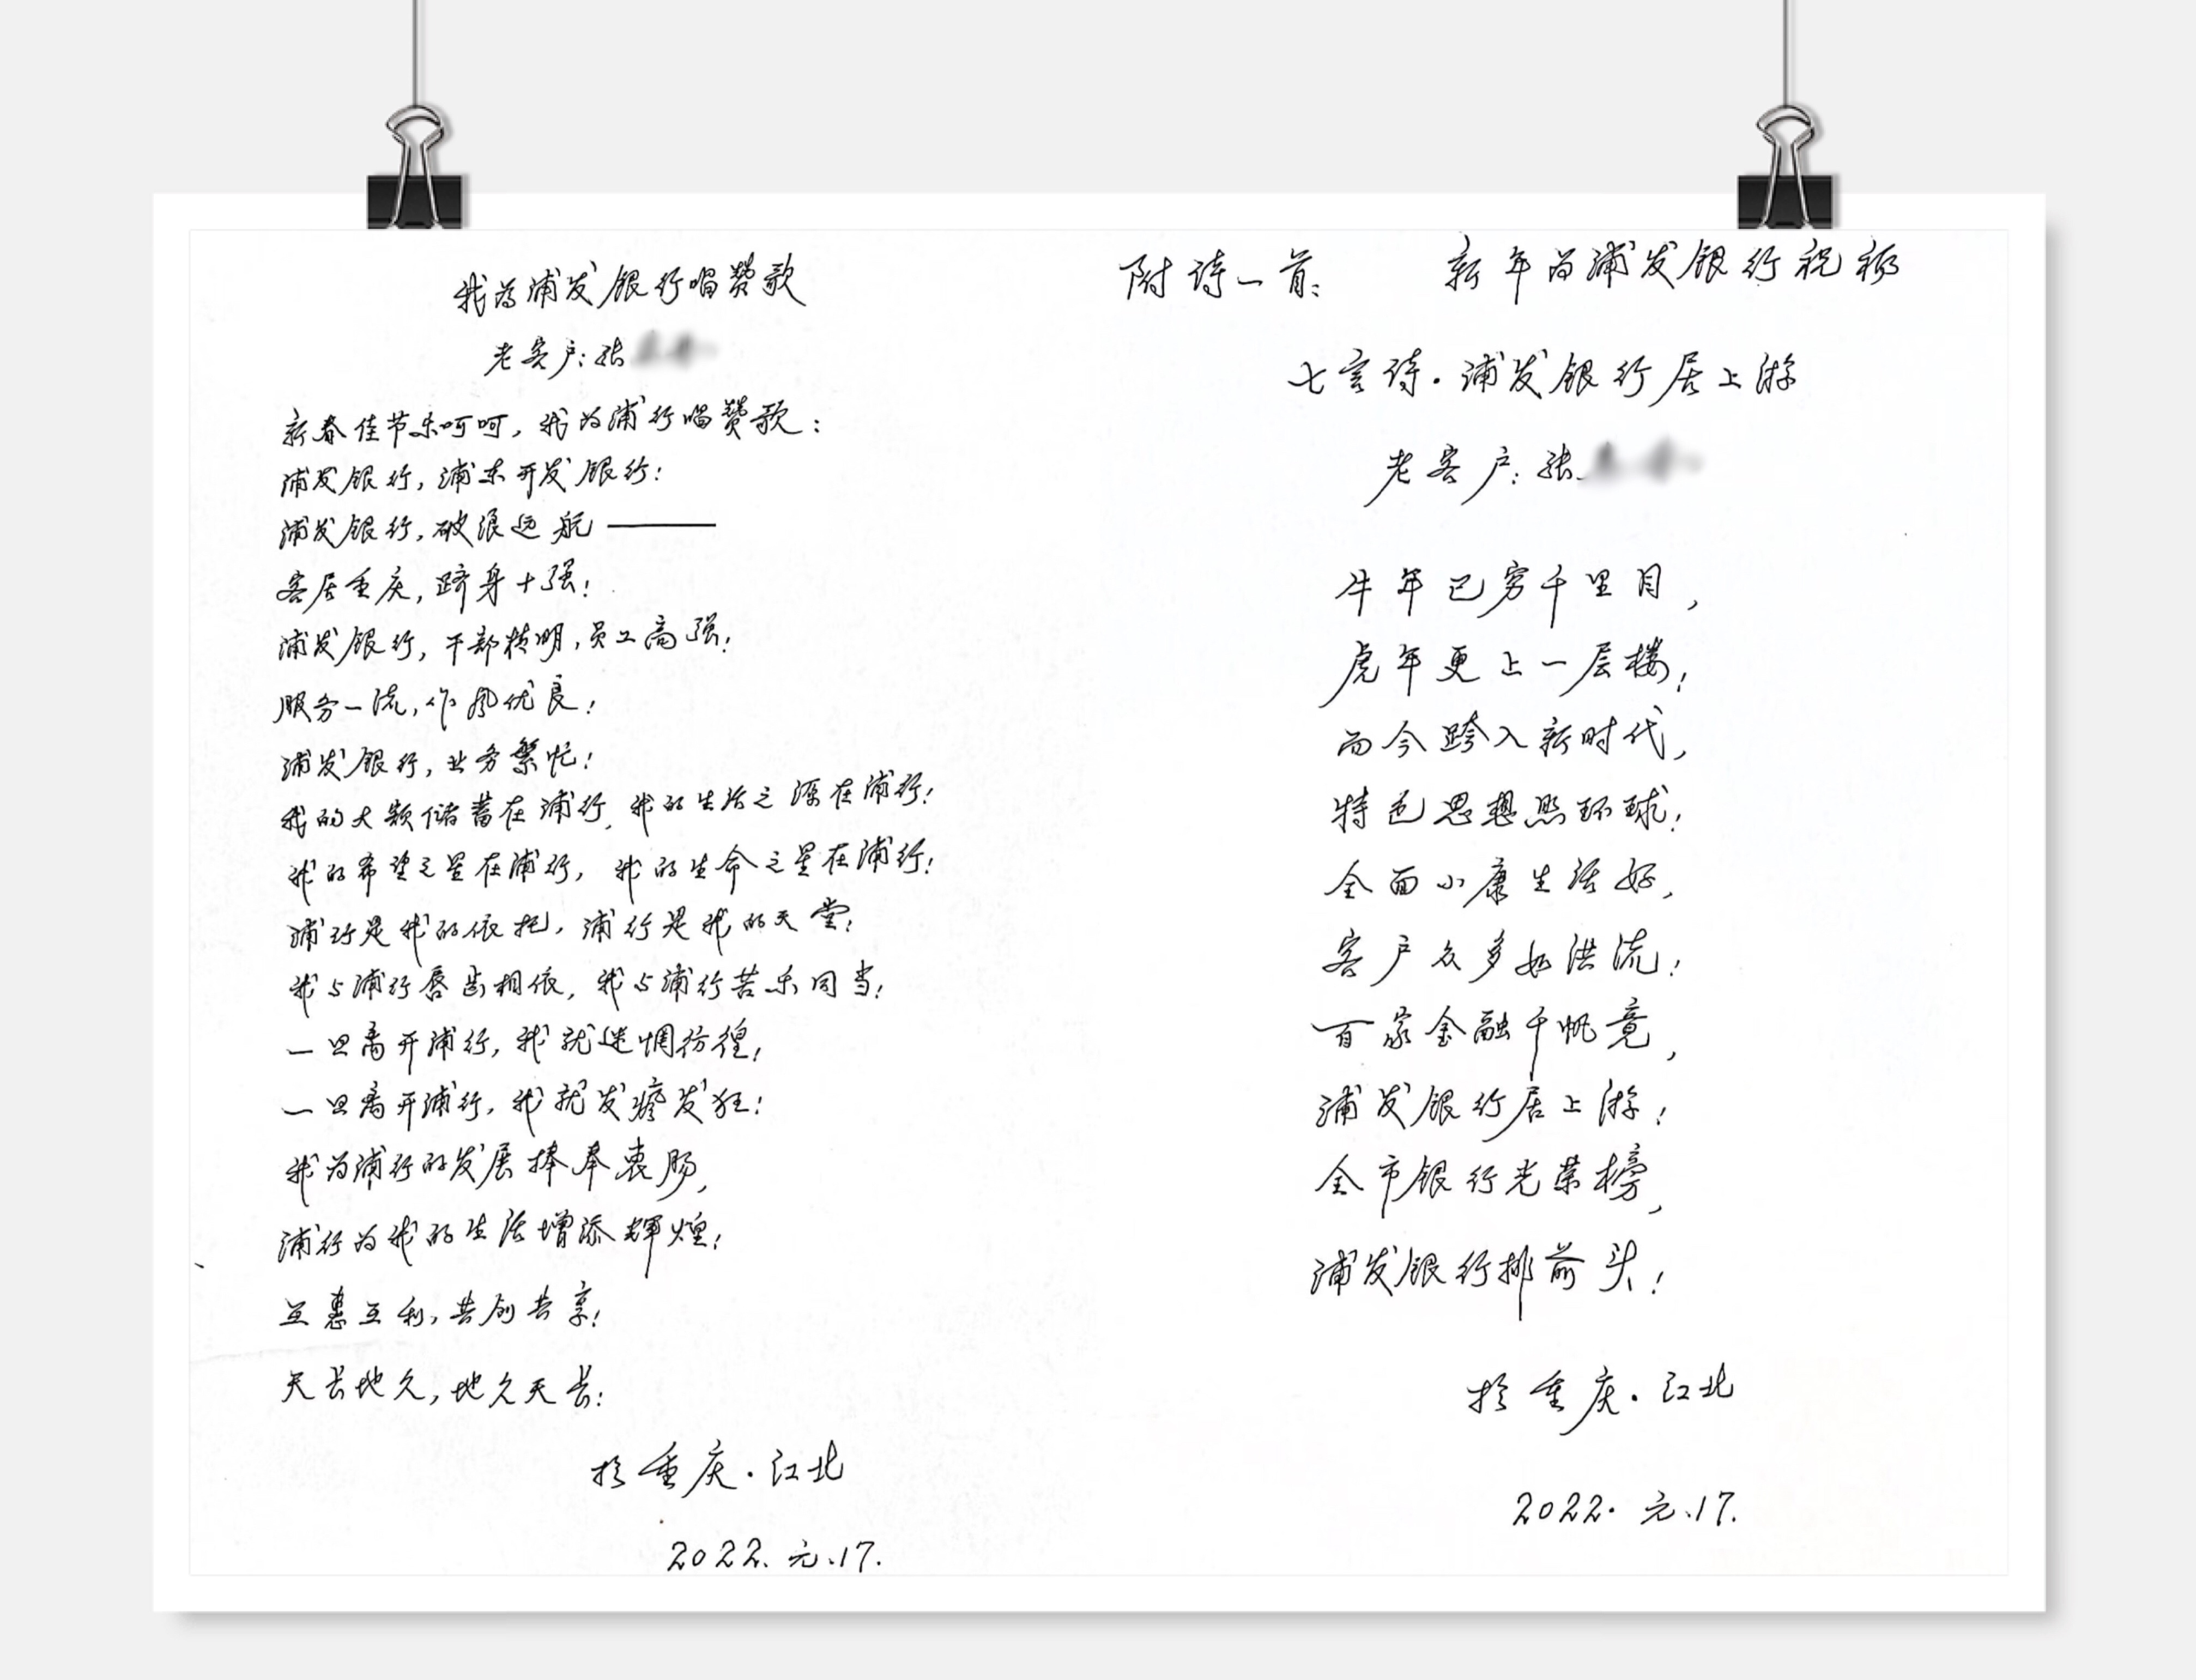 我为浦发银行唱赞歌
老客户:张
新春佳节乐呵呵,我为浦行唱赞歌:
浦发银行,浦东开发银行!
浦发银行,破浪远航——
客居重庆,跻身十强!
浦发银行,干部精明,员工高强!
服务一流,作风优良!
浦发银行,业务繁忙!
我的大额储蓄在浦行,我的生活之源在浦行!
我的希望之星在浦行,我的生命之星在浦行!
浦行是我的依托,浦行是我的天堂!
我与浦行唇齿相依,我与浦行苦乐同当!
一旦离开浦行,我就迷惘彷徨!
一旦离开浦行,我就发癫发狂!
我为浦行的发展捧奉衷肠,
浦行为我的生活增添辉煌!
互惠互利,共创共享!
天长地久,地久天长!
于重庆·江北
2022.元.17.
附诗一首: 新年为浦发银行祝福
七言诗·浦发银行居上游
老客户:张
牛年已穷千里目,
虎年更上一层楼!
而今跨入新时代,
特色思想照环球!
全面小康生活好,
客户众多如洪流!
百家金融千帆竟,
浦发银行居上游!
全市银行光荣榜,
浦发银行排前头!
于重庆·江北
2022.元.17.